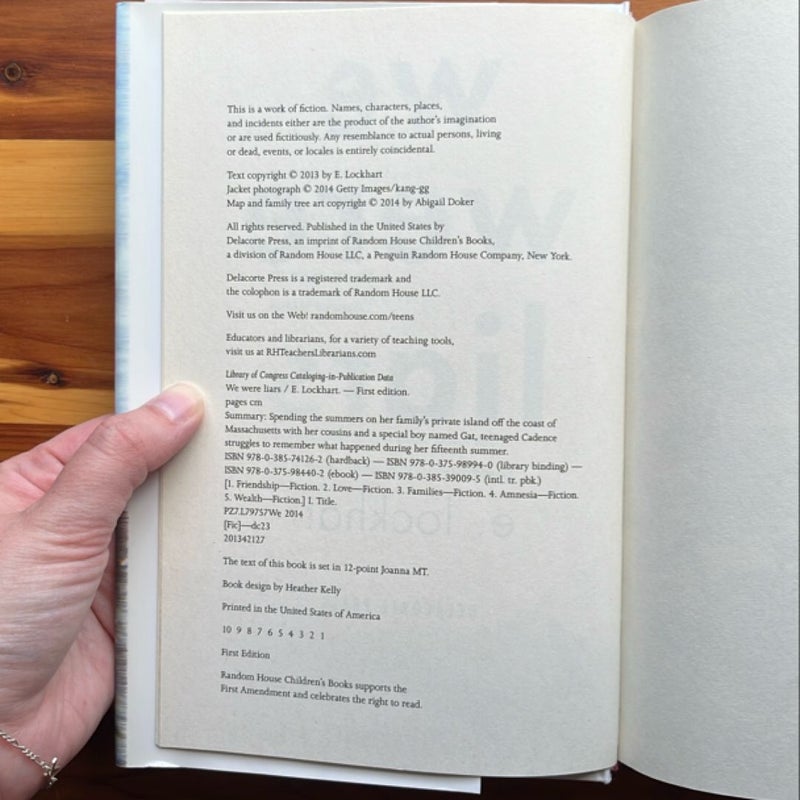 This is a work of fiction. Names, characters, places,
and incidents either are the product of the author's imagination
or are used fictitiously. Any resemblance to actual persons, living
or dead, events, or locales is entirely coincidental.
Text copyright © 2013 by E. Lockhart
Jacket photograph © 2014 Getty Images/kang-gg
Map and family tree art copyright © 2014 by Abigail Doker
All rights reserved. Published in the United States by
Delacorte Press, an imprint of Random House Children's Books,
a division of Random House LLC, a Penguin Random House Company, New York.
Delacorte Press is a registered trademark and
the colophon is a trademark of Random House LLC.
Visit us on the Web! randomhouse.com/teens
Educators and librarians, for a variety of teaching tools,
visit us at RHTeachersLibrarians.com
Library of Congress Cataloging-in-Publication Data
We were liars / E. Lockhart. — First edition.
pages cm
Summary: Spending the summers on her family's private island off the coast of
Massachusetts with her cousins and a special boy named Gat, teenaged Cadence
struggles to remember what happened during her fifteenth summer.
ISBN 978-0-385-74126-2 (hardback) — ISBN 978-0-375-98994-0 (library binding) —
ISBN 978-0-375-98440-2 (ebook) — ISBN 978-0-385-39009-5 (intl. tr. pbk.)
[1. Friendship—Fiction. 2. Love—Fiction. 3. Families—Fiction. 4. Amnesia—Fiction.
5. Wealth—Fiction.] I. Title.
PZ7.L79757We 2014
[Fic]—dc23
201342127
The text of this book is set in 12-point Joanna MT.
Book design by Heather Kelly
Printed in the United States of America
10 9 8 7 6 5 4 3 2 1
First Edition
Random House Children's Books supports the
First Amendment and celebrates the right to read.